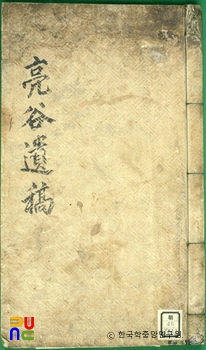 亮谷遺稿
© 한국학중앙연구원